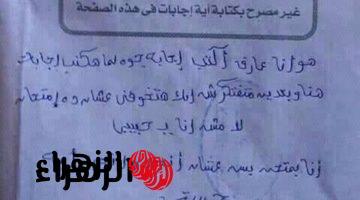 غير مصرح بكتابة أية إجابات فى هذه الصفحة
هو أنا عارف أكتب إجابة جوه لما هكتب إجابة
هنا وبعدين متفتكرش إنك هتخوفنى عشان ده إمتحان
لا مش أنا يا حبيبى
أنا بمتحن بس عشان
الزهراء